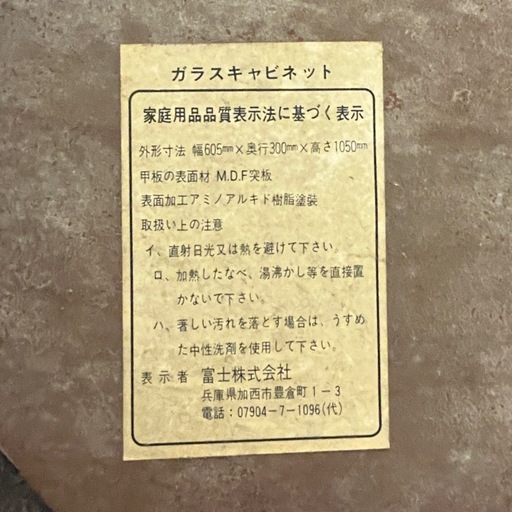 ガラスキャビネット
家庭用品品質表示法に基づく表示
外形寸法 幅605mm×奥行300mm×高さ1050mm
甲板の表面材 M.D.F突板
表面加工アミノアルキド樹脂塗装
取扱い上の注意
イ、直射日光又は熱を避けて下さい。
ロ、加熱したなべ、湯沸かし等を直接置
かないで下さい。
ハ、著しい汚れを落とす場合は、うすめ
た中性洗剤を使用して下さい。
表示者 富士株式会社
兵庫県加西市豊倉町1-3
電話:07904-7-1096(代)